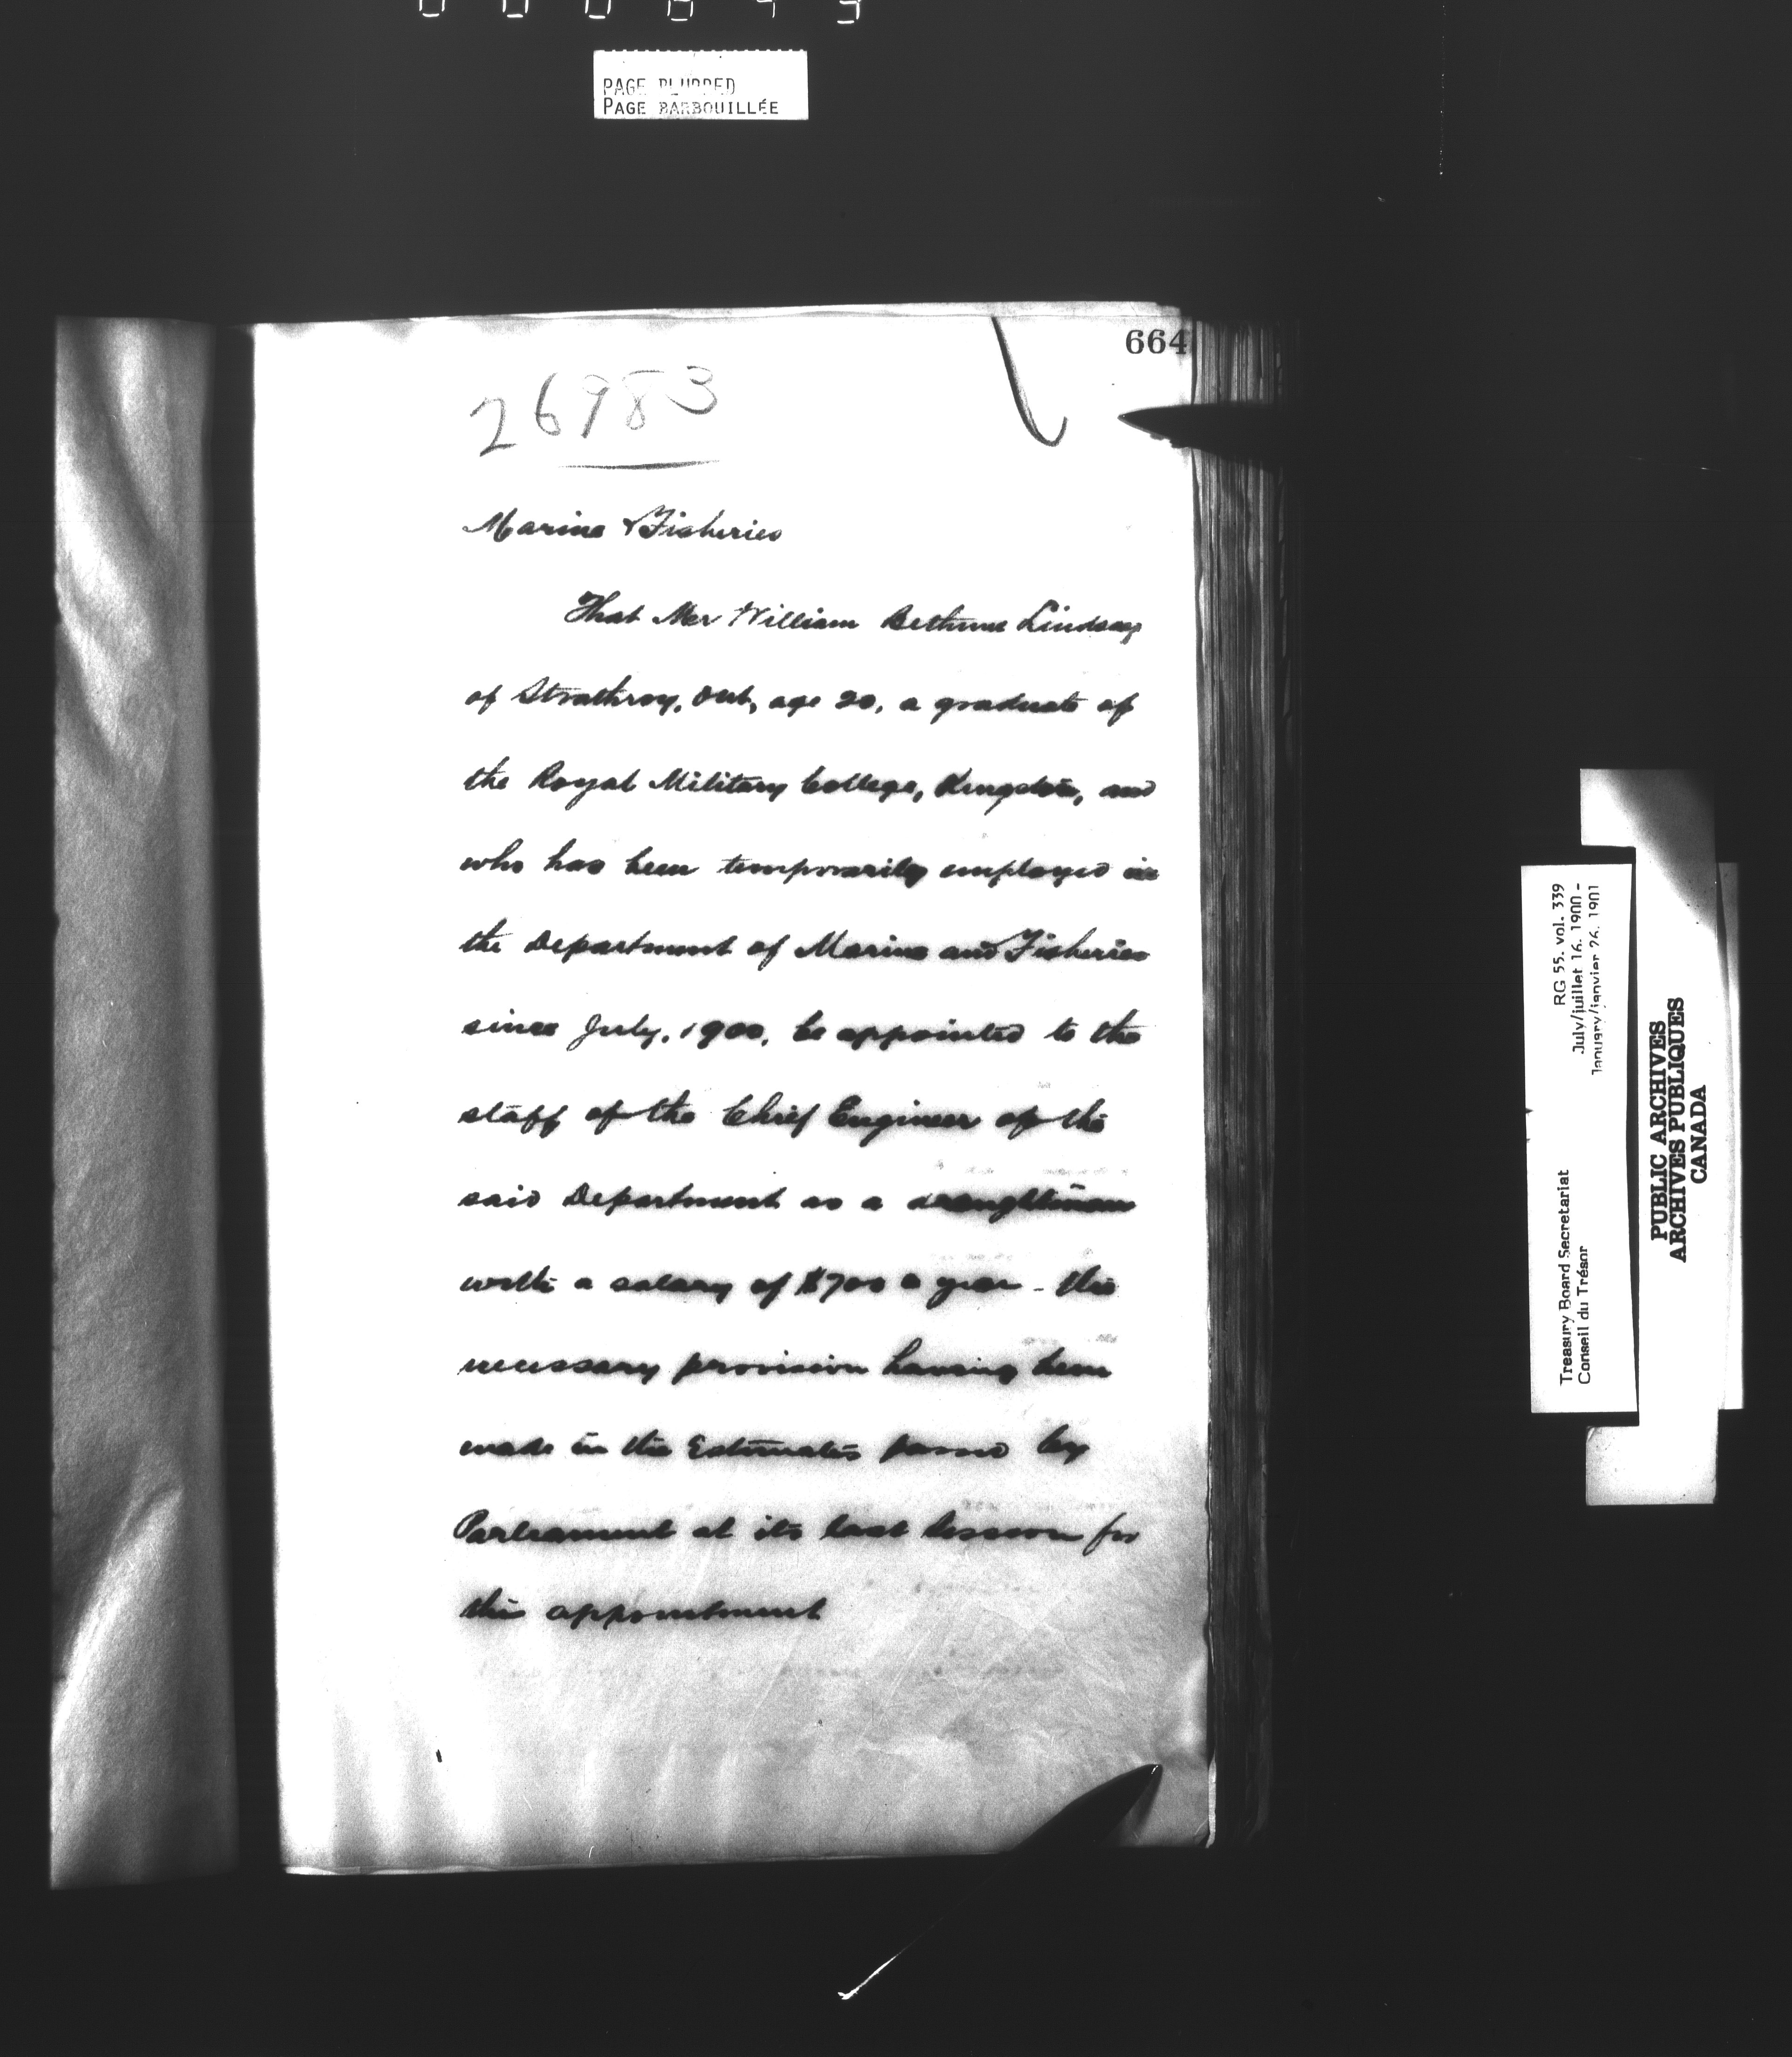 PAGE BLURRED
PAGE BARBOUILLÉE
664
26983
Marine & Fisheries
That Mr William Bethune Lindsay
of Strathroy, Ont, age 20, a graduate of
the Royal Military College, Kingston, and
who has been temporarily employed in
the Department of Marine and Fisheries
since July, 1900, be appointed to the
staff of the Chief Engineer of the
said Department as a draughtsman
with a salary of $700 a year - the
necessary provision having been
made in the Estimates passed by
Parliament at its last session for
this appointment
RG 55, vol. 339
July/juillet 16, 1900 -
January/janvier 26, 1901
Treasury Board Secretariat
Conseil du Trésor
PUBLIC ARCHIVES
ARCHIVES PUBLIQUES
CANADA